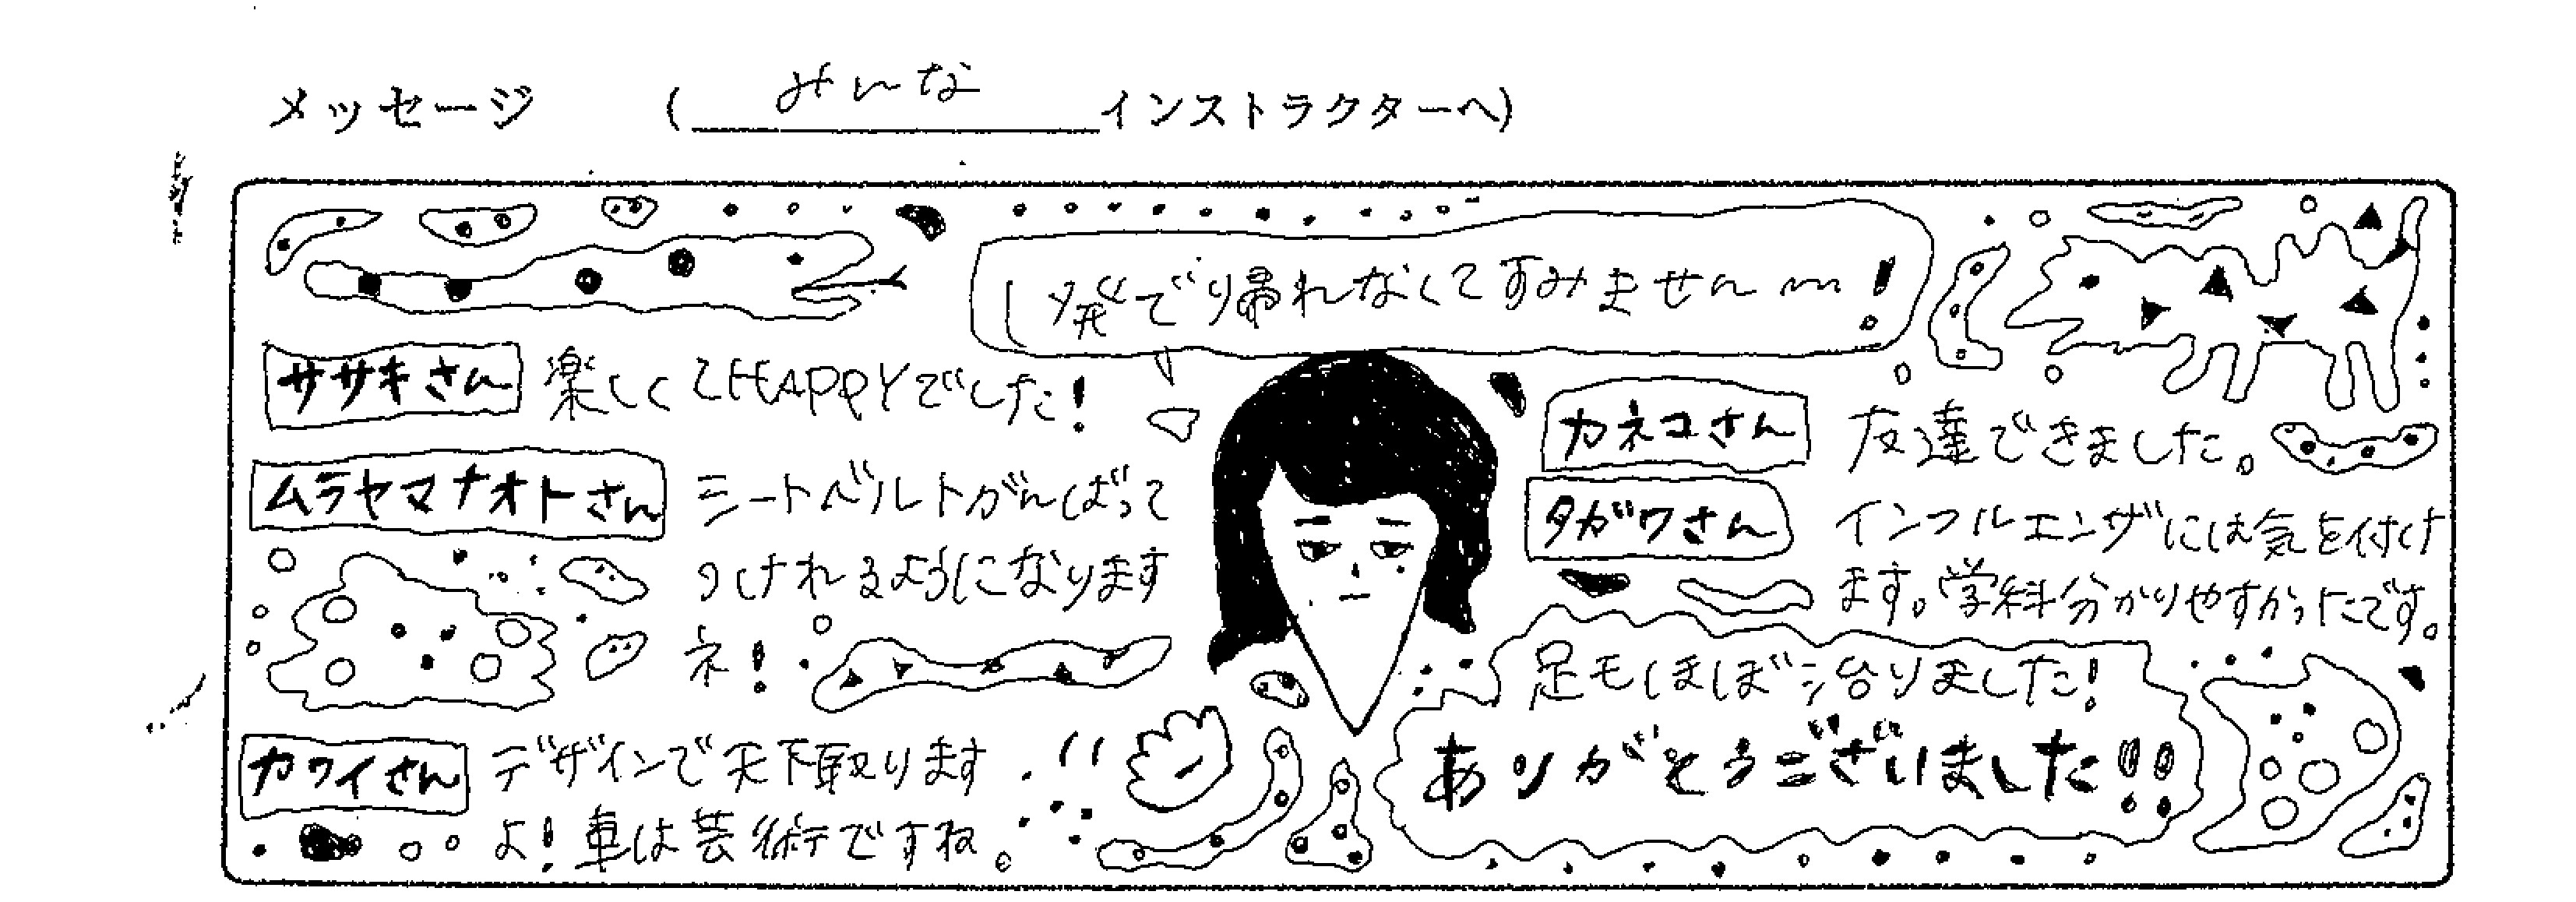 メッセージ (みんなインストラクターへ)
一発で帰れなくてすみませんm!
ササキさん 楽しくてHAPPYでした!
ムラヤマナオトさん シートベルトがんばって
つけれるようになります
ネ!
カワイさん デザインで天下取ります
よ!車は芸術ですね。
カネコさん 友達できました。
タガワさん インフルエンザには気を付け
ます。学科分かりやすかったです。
足もほぼ治りました!
ありがとうございました!!